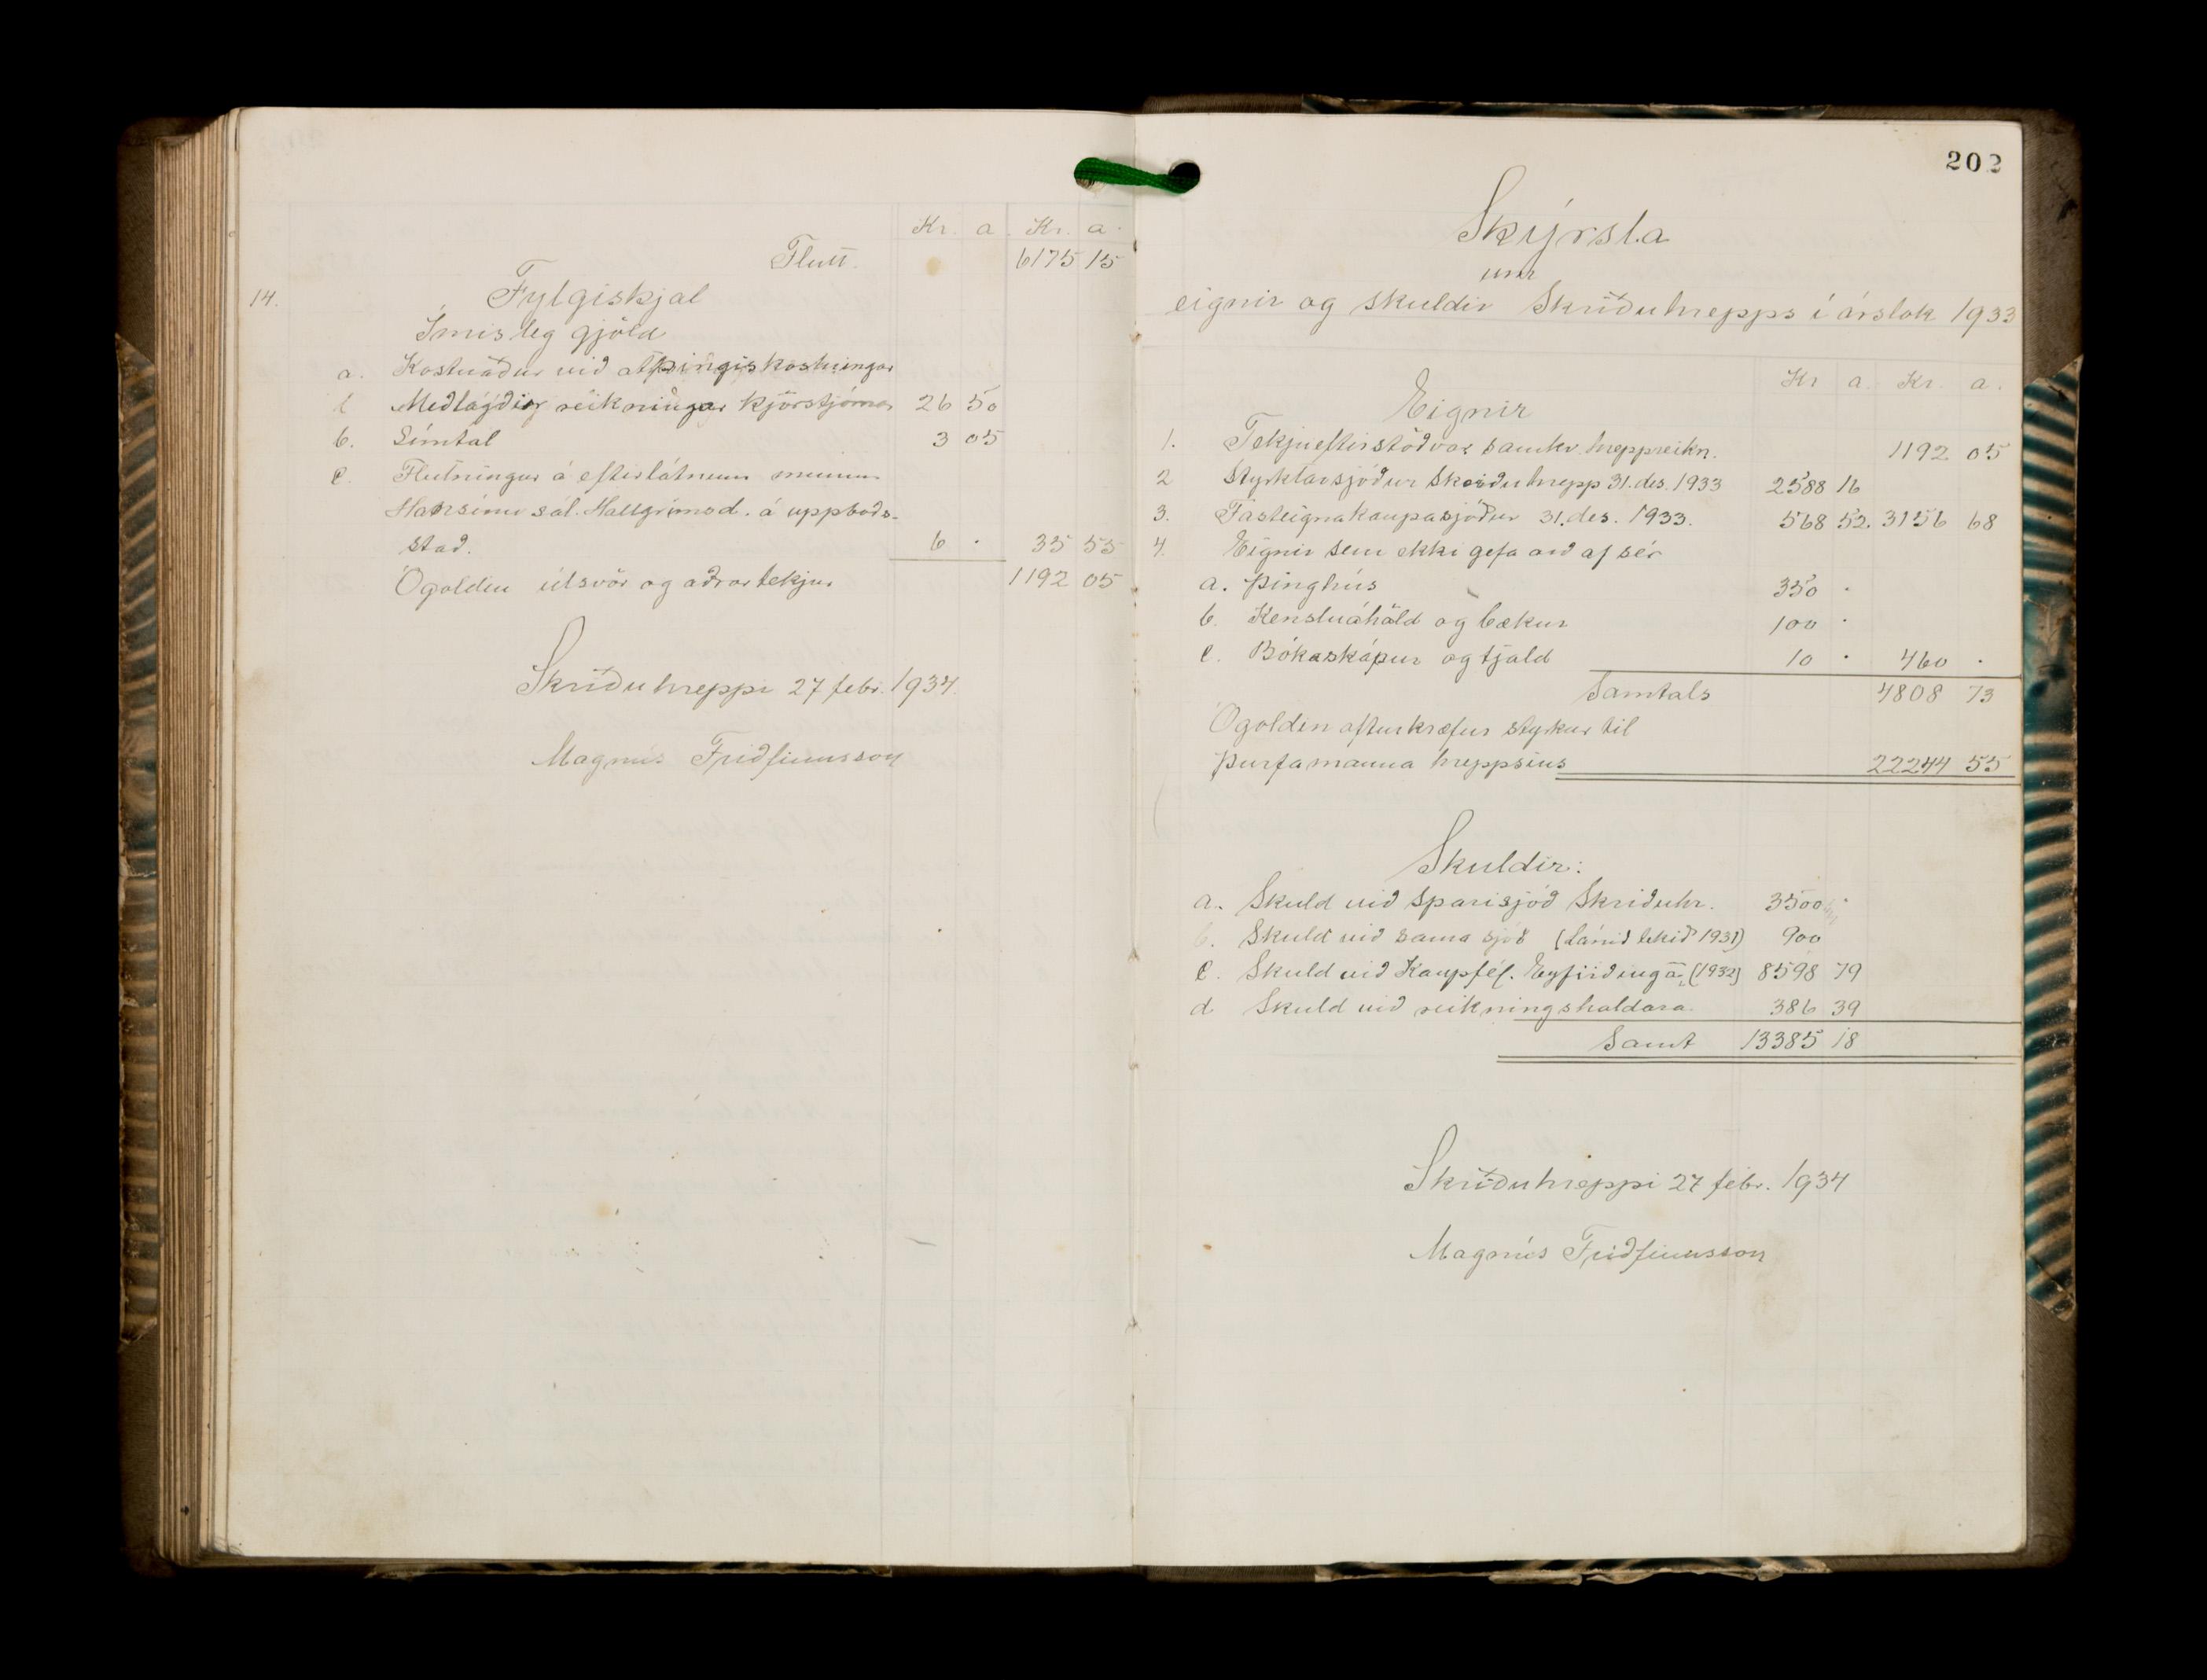 Kr. a. Kr. a.
Flutt. 6175 15
14. Fylgiskjal
Ímisleg gjöld
a. Kostnaður við alþingiskosningar
Meðlagðir reikningar kjörstjórnar 26 50
b. Símtal 3 05
c. Flutningur á efterlátnum munum
Hansínu sál. Hallgrímsd. á uppboðs-
stað. 6 . 35 55
Ógoldin útsvör og aðrar tekjur 1192 05
Skriðuhreppi 27 febr. 1934.
Magnús Friðfinnsson
202
Skýrsla
um
eignir og skuldir Skriðuhrepps í árslok 1933
Kr a. Kr. a.
Eignir
1. Tekjueftirstöðvar samkv. hreppreikn. 1192 05
2 Styrktarsjóður Skriðuhrepp 31. des. 1933 2588 16
3. Fasteignakaupasjóður 31. des. 1933. 568 52. 3156 68
4. Eignir sem ekki gefa arð af sér
a. Þinghús 350 .
b. Kensluáhöld og bækur 100 .
c. Bókaskápur og tjald 10 . 460 .
Samtals 4808 73
Ógoldin afturkræfur styrkur til
þurfamanna hreppsins 22244 55
Skuldir:
a. Skuld við Sparisjóð Skriðuhr. 3500 .
b. Skuld við sama sjóð (Lánið tekið 1931) 900
c. Skuld við Kaupfél. Eyfirðinga (1932) 8598 79
d Skuld við reikningshaldara. 386 39
Samt 13385 18
Skriðuhreppi 27 febr. 1934
Magnús Friðfinnsson